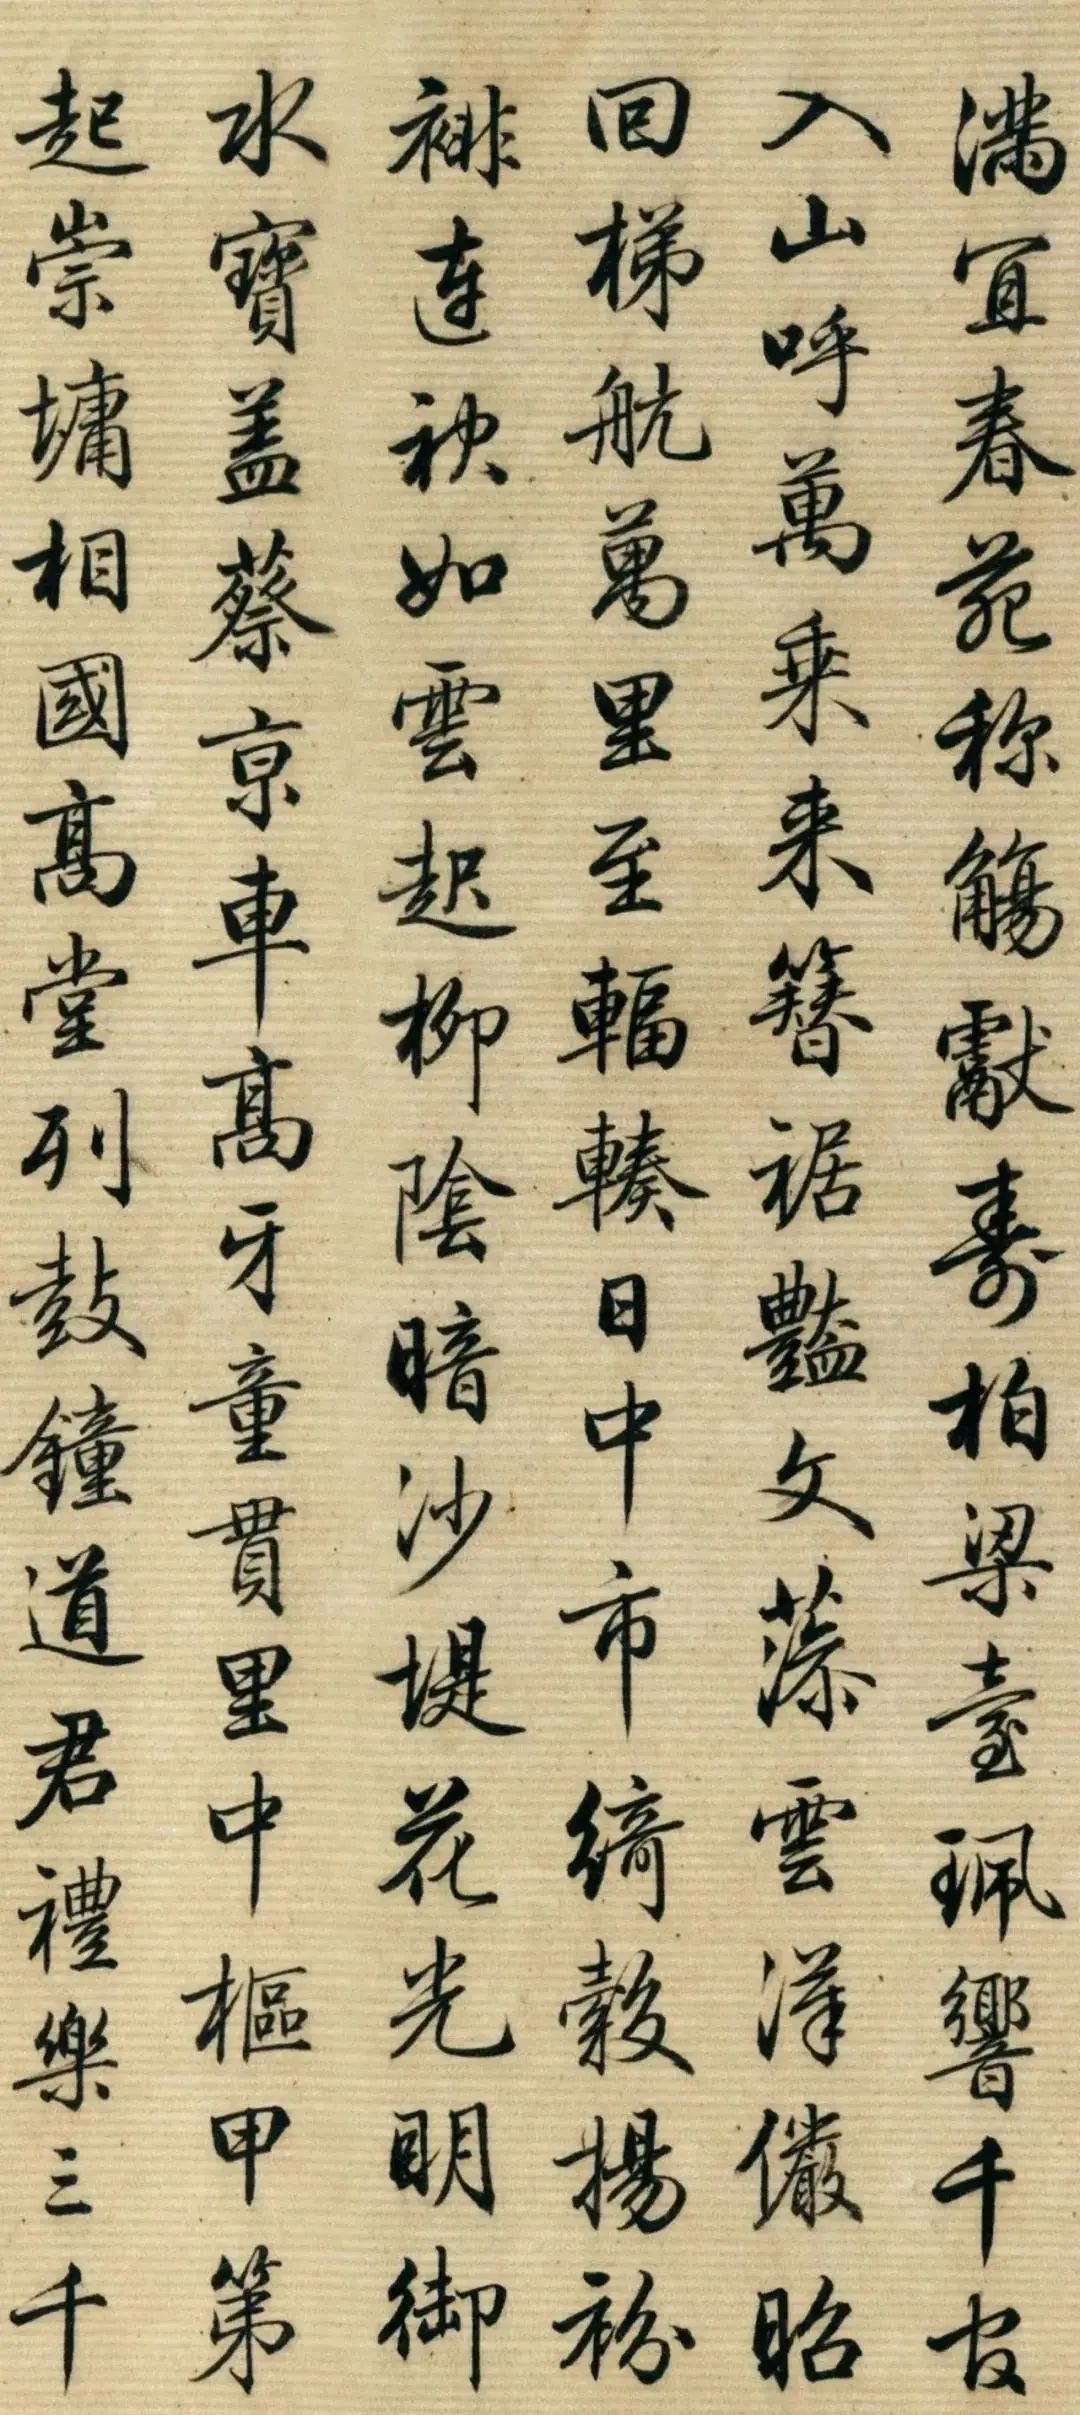 滿宜春苑称觴獻壽柏梁臺珮響千官
入山呼萬乘来簪裾豔文藻雲漢儼昭
回梯航萬里至輻輳日中市綺縠揚紛
褂連袂如雲起柳陰暗沙堤花光明御
水寶盖蔡京車高牙童貫里中樞甲第
起崇墉相國高堂列鼓鐘道君禮樂三千